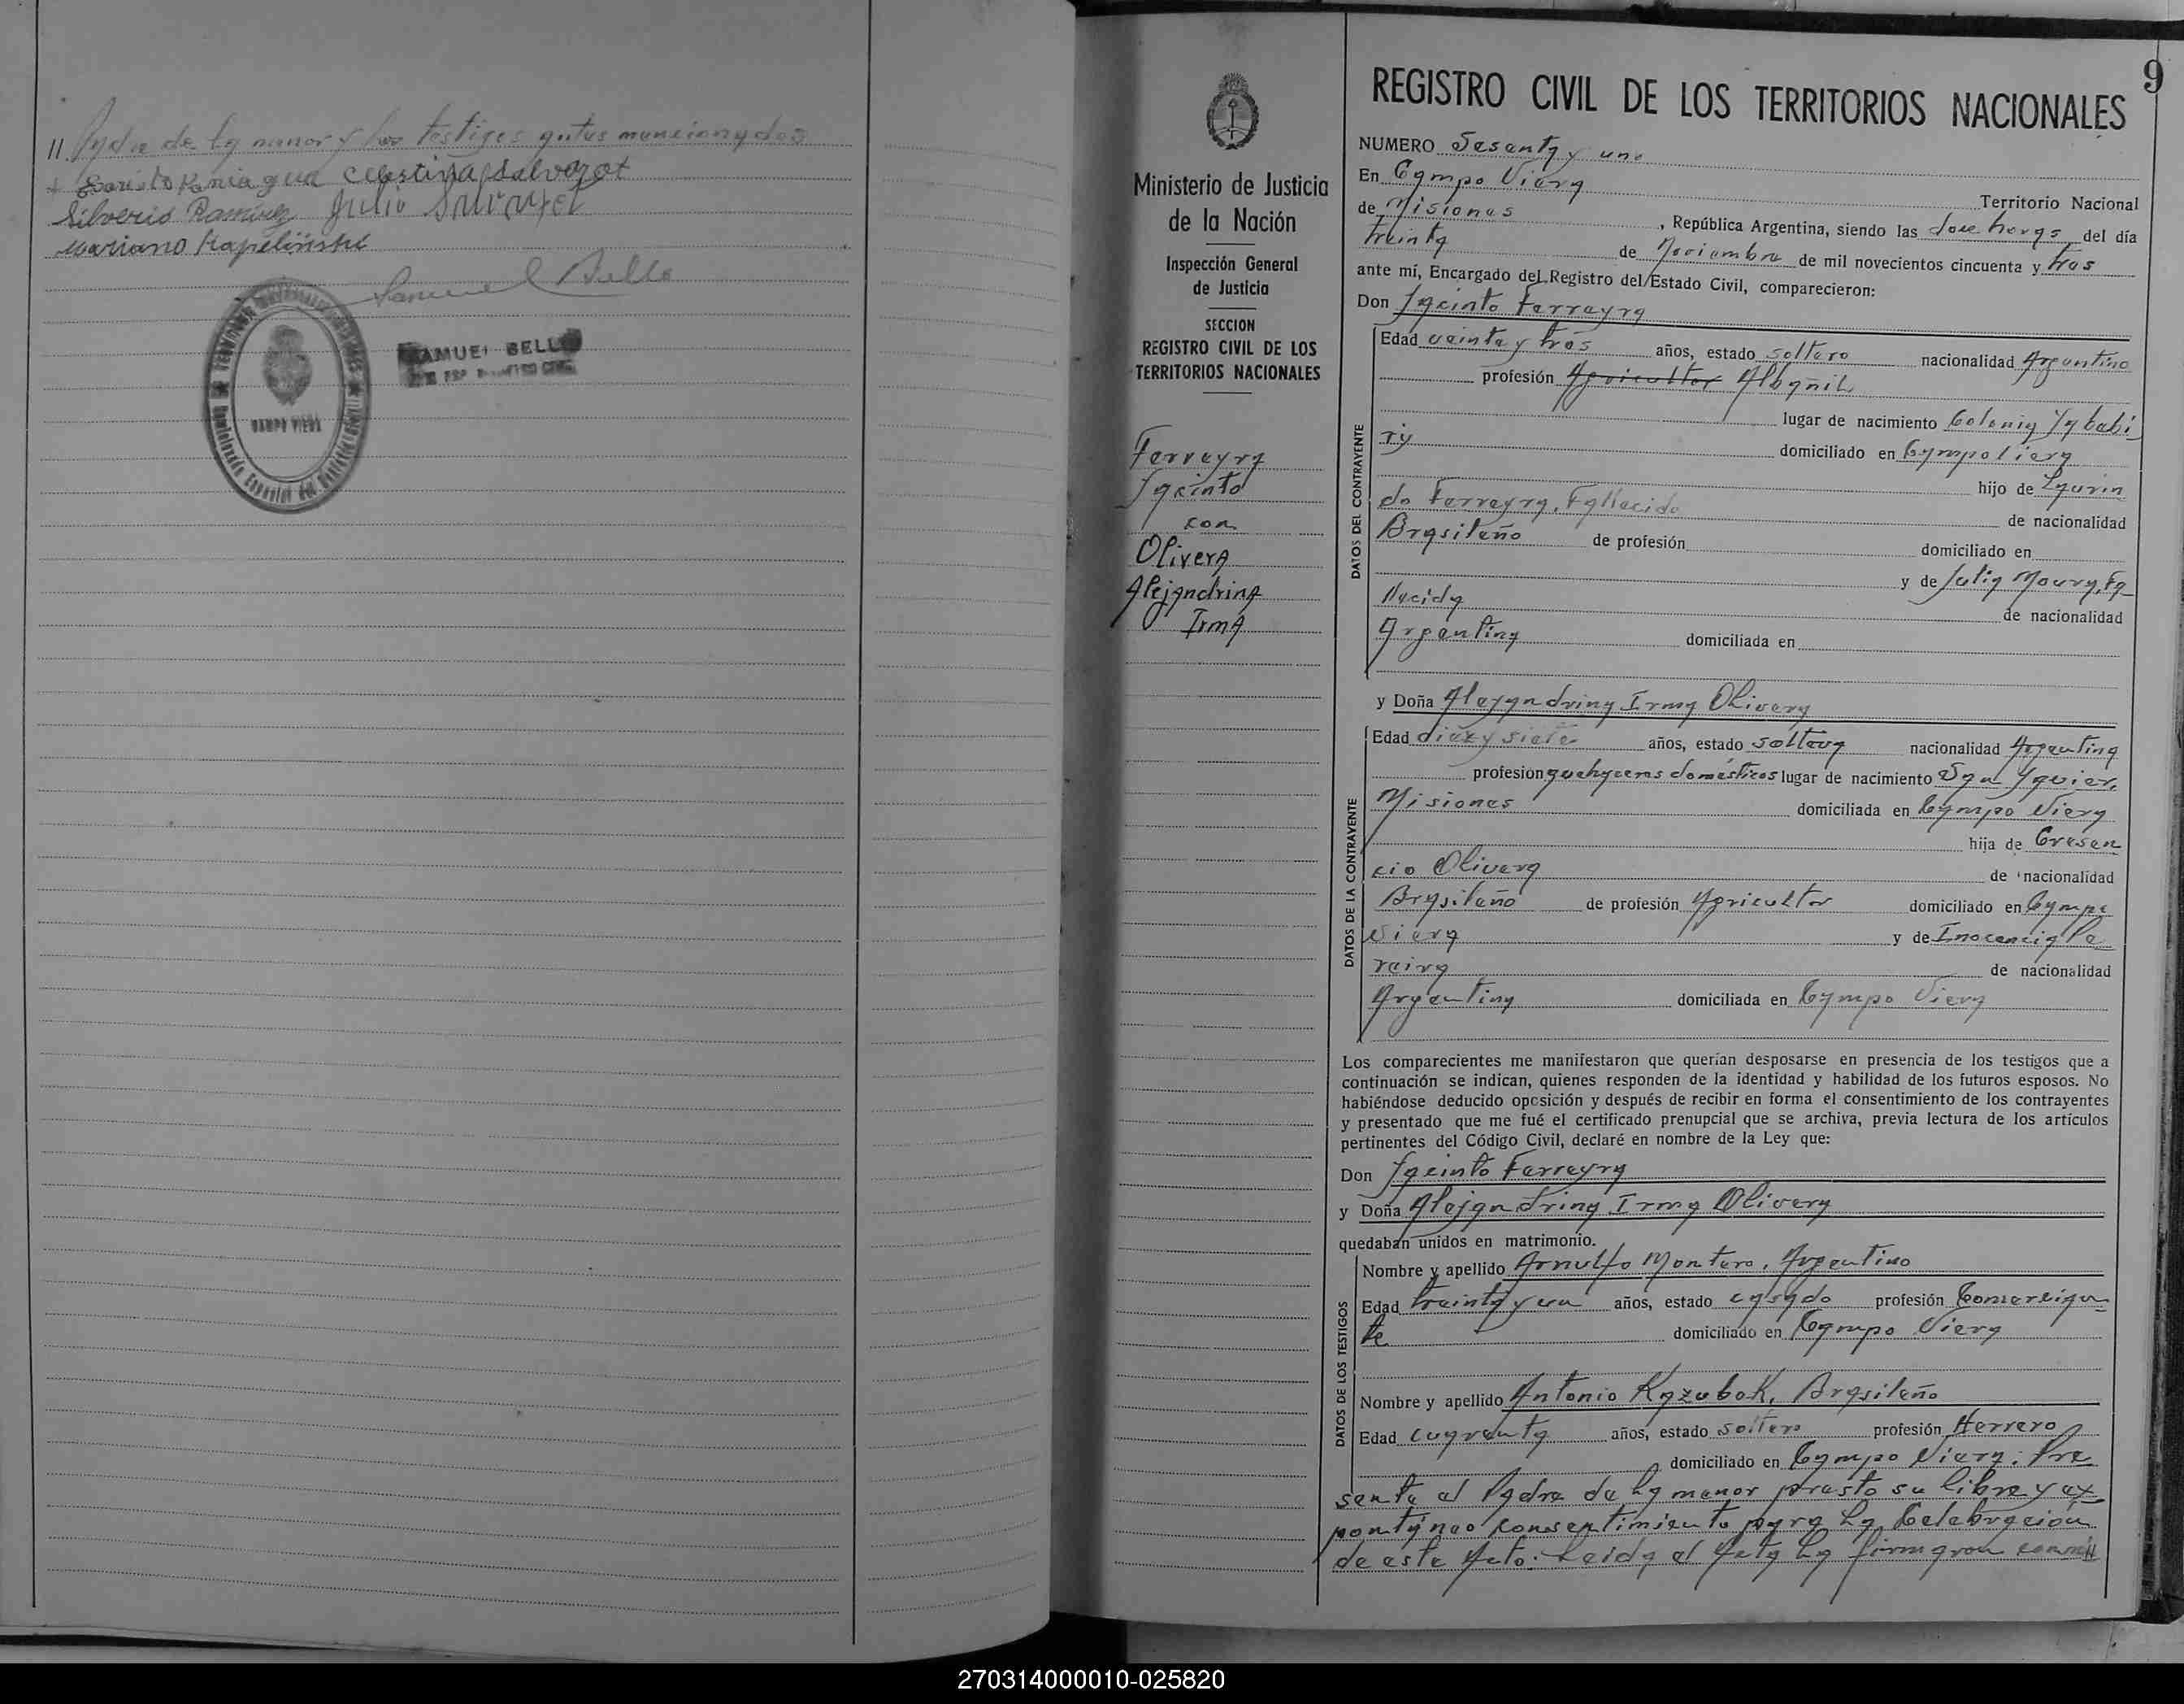 // Padre de la menor y los testigos antes mencionados
+ Evaristo Paniagua Celestina Salvazat
Silverio Ramirez Julio
Mariano Kapeliński
Samuel Bello
SAMUEL BELLO
CAMPO VIERA
9
REGISTRO CIVIL DE LOS TERRITORIOS NACIONALES
Ministerio de Justicia
de la Nación
Inspección General
de Justicia
SECCION
REGISTRO CIVIL DE LOS
TERRITORIOS NACIONALES
Ferreyra
Jacinto
con
Olivera
Alejandrina
Irma
NUMERO Sesenta y uno
En Campo Viera
Territorio Nacional
de Misiones, República Argentina, siendo las doce horas del día
treinta de Noviembre de mil novecientos cincuenta y tres
ante mí, Encargado del Registro del Estado Civil, comparecieron:
Don Jacinto Ferreyra
DATOS DEL CONTRAYENTE
Edad veinte y tres años, estado soltero nacionalidad Argentino
profesión Agricultor Albañil
lugar de nacimiento Colonia Yababi
ry domiciliado en Campo Viera
hijo de Laurin
do Ferreyra, Fallecido de nacionalidad
Brasileño de profesión domiciliado en
y de Julia Moura, Fa
llecida de nacionalidad
Argentina domiciliada en
y Doña Alejandrina Irma Olivera
DATOS DE LA CONTRAYENTE
Edad diez y siete años, estado soltera nacionalidad Argentina
profesion quehaceres domésticos lugar de nacimiento San Javier,
Misiones domiciliada en Campo Viera
hija de Cresen
cio Olivera de nacionalidad
Brasileño de profesión Agricultor domiciliado en Campo
Viera y de Inocencia Pe
reira de nacionalidad
Argentina domiciliada en Campo Viera
Los comparecientes me manifestaron que querían desposarse en presencia de los testigos que a
continuación se indican, quienes responden de la identidad y habilidad de los futuros esposos. No
habiéndose deducido oposición y después de recibir en forma el consentimiento de los contrayentes
y presentado que me fué el certificado prenupcial que se archiva, previa lectura de los artículos
pertinentes del Código Civil, declaré en nombre de la Ley que:
Don Jacinto Ferreyra
y Doña Alejandrina Irma Olivera
quedaban unidos en matrimonio.
DATOS DE LOS TESTIGOS
Nombre y apellido Arnulfo Montero, Argentino
Edad treinta y un años, estado casado profesión Comercian
te domiciliado en Campo Viera
Nombre y apellido Antonio Kazubok, Brasileño
Edad cuarenta años, estado soltero profesión Herrero
domiciliado en Campo Viera: Pre
sente el Padre de la menor presto su libre y ex
pontáneo consentimiento para la Celebracion
de este Acto: Leida el Acta la firmaron conmi //
270314000010-025820